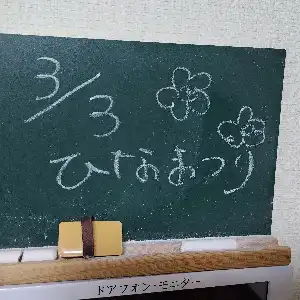 3/3
ひなまつり
ドアフォン・モニター